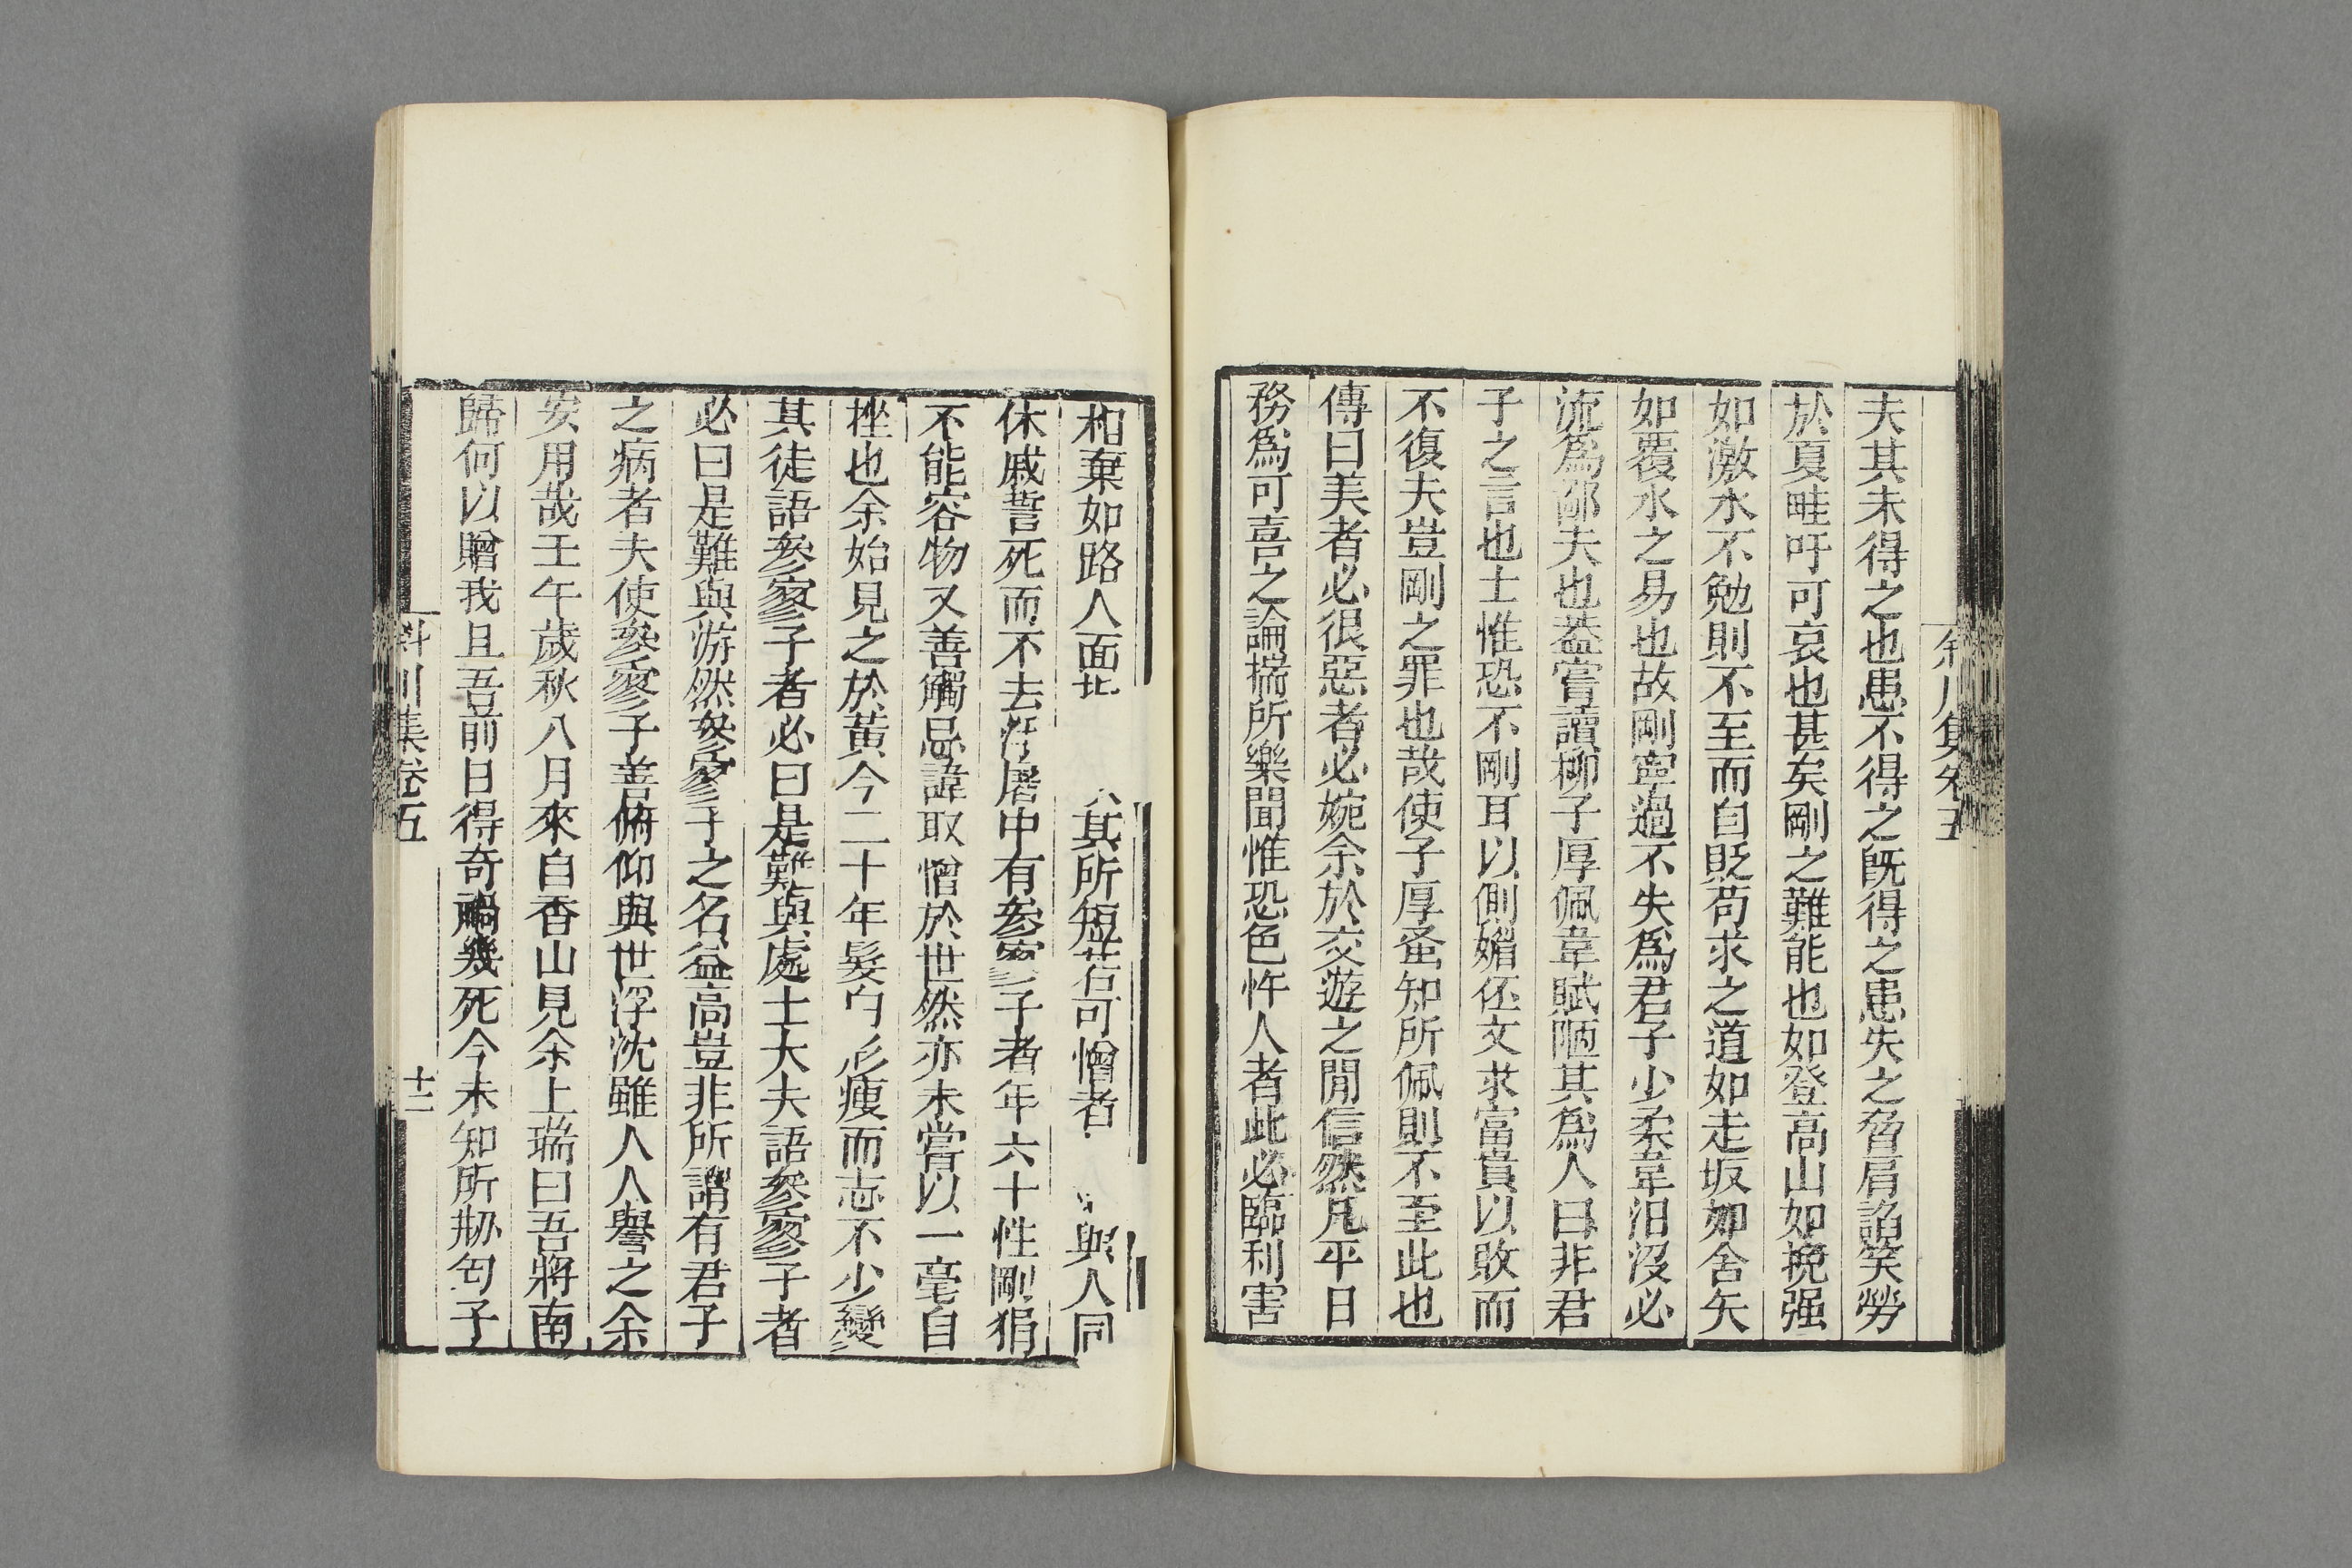 夫其未得之也患不得之既得之患失之脅肩諂笑勞
於夏畦吁可哀也甚矣剛之難能也如登高山如挽强
如激水不勉則不至而自貶苟求之道如走坂如舍矢
如覆水之易也故剛寧過不失爲君子少柔韋汨沒必
流爲鄙夫也葢嘗讀柳子厚佩韋賦陋其爲人曰非君
子之言也士惟恐不剛耳以側媚伾文求富貴以敗而
不復夫豈剛之罪也哉使子厚蚤知所佩則不至此也
傳曰美者必很惡者必婉余於交遊之閒信然凡平日
務爲可喜之論揣所樂聞惟恐色忤人者此必臨利害
相棄如路人面非其所短若可憎者與人同
休戚誓死而不去浮屠中有參寥子者年六十性剛狷
不能容物又善觸忌諱取憎於世然亦未嘗以一毫自
挫也余始見之於黃今二十年髮白形瘦而志不少變
其徒語參寥子者必曰是難與處士大夫語參寥子者
必曰是難與游然參寥子之名益高豈非所謂有君子
之病者夫使參寥子善俯仰與世浮沈雖人人譽之余
安用哉壬午歲秋八月來自香山見余上瑞曰吾將南
歸何以贈我且吾前日得奇禍幾死今未知所刱句子
斜川集卷五
十二